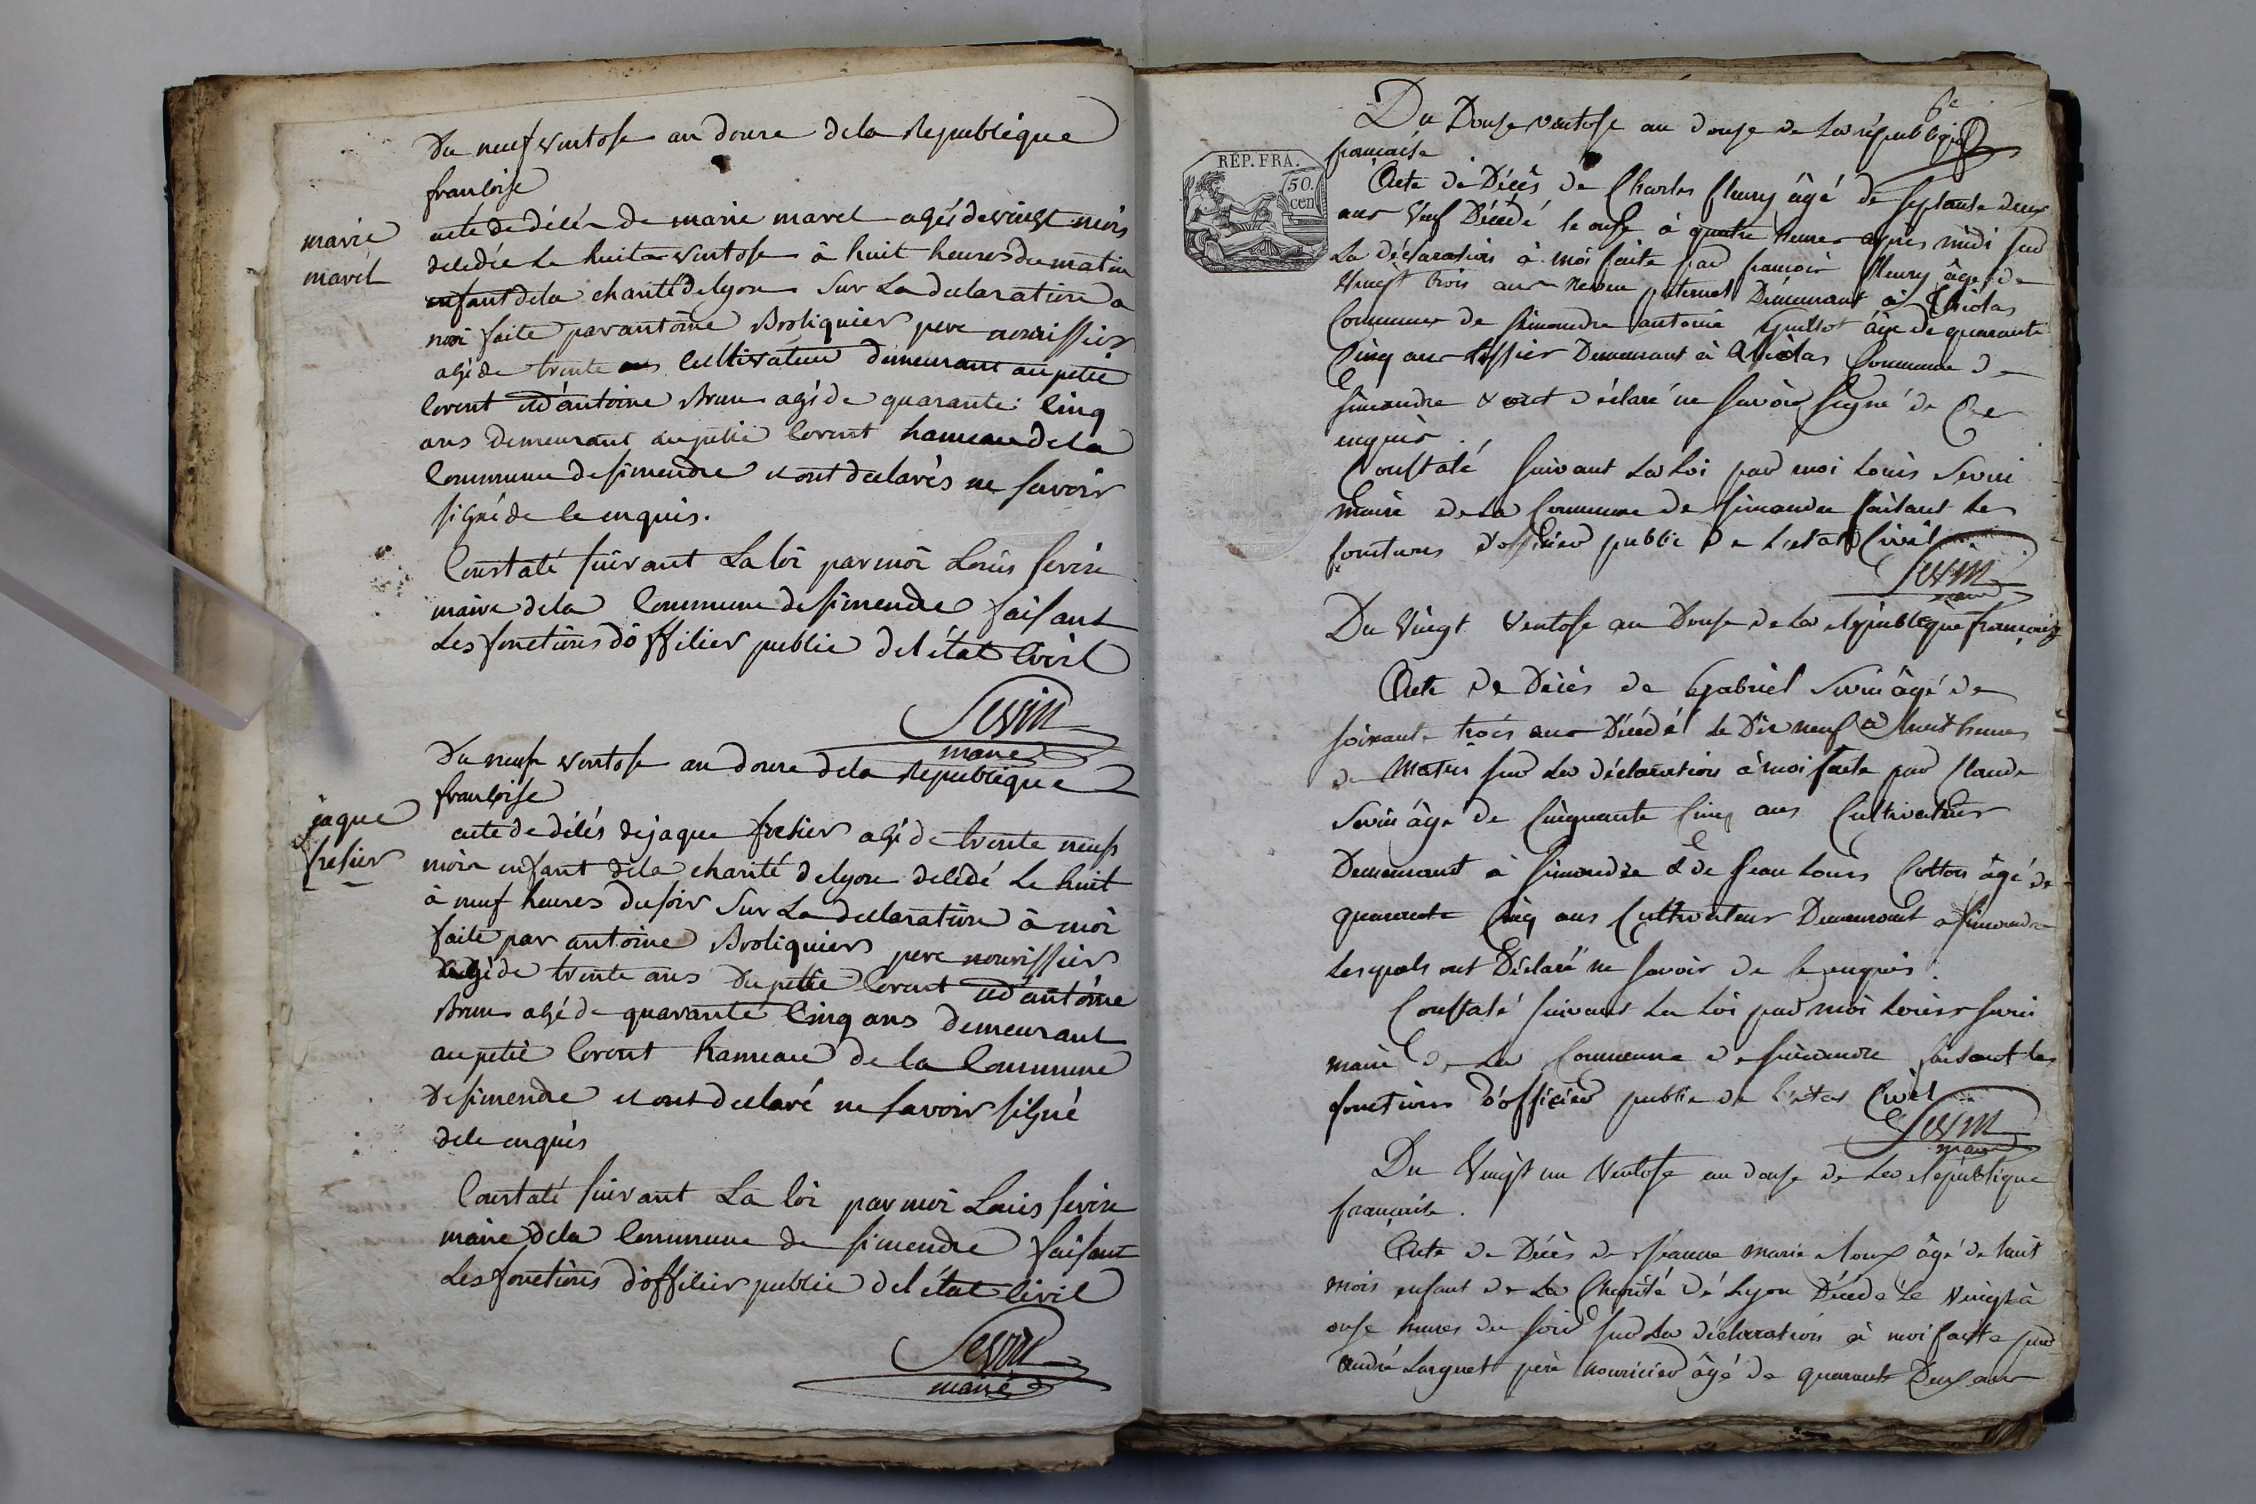 Du neuf ventose an douze dela Republique
francoise
marie
marel
acte de décés de marie marel agé de vingt mois
decedée le huit ventose à huit heures du matin
enfant dela charité de lyon sur la declaration a
moi faite par antoine Broliquier pere nourissier
agé de trente ans cultivateur demeurant au petit
corcnt et d'antoine Brun agé de quarante cinq
ans demeurant au petit corent hameau dela
Commune de simendre et ont declarés ne savoir
signé de ce enquis.
Constaté suivant la loi par moi Louis sevin
maire dela Commune de simendre faisant
les fonctions d'officier public del état civil
Sevin
maire
Du neuf ventose an douze dela Republique
francoise
jaque
fresier
acte de décés de jaque agé de trente neuf
mois enfant dela charité de lyon decedé le huit
à neuf heures du soir sur la declaration à moi
faite par antoine Broliquier pere nourissier
agé de trente ans du petit coront et d'antoine
Brun agé de quarante cinq ans demeurant
au petit coront hameau de la Commune
de simendre et ont declaré ne savoir signé
de ce enquis
Constaté suivant la loi par moi Louis sevin
maire dela Commune de simendre faisant
les fonctions d'officier public del état civil
Sevin
maire
6e
Du Douze ventose an douze de la république
francaise
RÉP. FRA.
50.
cen
Acte de Décès de Charles fleury âgé de septante deux
ans veuf Décédé le onze à quatre heures après midi sur
La déclaration à moi faite par françois fleury âgé de
vingt trois ans neveu paternel Demeurant à
Commune de simandre antoine Guillot âgé de quarante
Cinq ans Demeurant à Commune de
simandre & ont déclaré ne savoir signé de Ce
enquis.
Constaté suivant la loi par moi Louis Sevin
maire de la Commune de simandre faisant les
fonctions d'officier public de l'etat Civil
Sevin
maire
Du Vingt Ventose an Douze de la république française
Acte de Décès de Gabriel Sevin âgé de
soixante trois ans Décédé le Dix neuf à huit heures
de Matin sur la déclaration à moi faite par Claude
Sevin âgé de Cinquante Cinq ans Cultivateur
Demeurant à simandre & de Jean Louis Cotton âgé de
quarante Cinq ans Cultivateur Demeurant a simandre
Lesquels ont Déclaré ne savoir de ce enquis.
Constaté suivant la loi par moi Louis sevin
maire de la Commune de simandre faisant les
fonctions d'officier public de l'etat Civil
Sevin
maire
Du Vingt un Ventose an douze de la république
francaise.
Acte de Décès de Jeanne marie âgé de huit
mois enfant de la Charité de Lyon Décédé le vingt à
onze heures du soir sur la déclaration à moi faite par
andré Larguet père nouricier âgé de quarante Deux ans